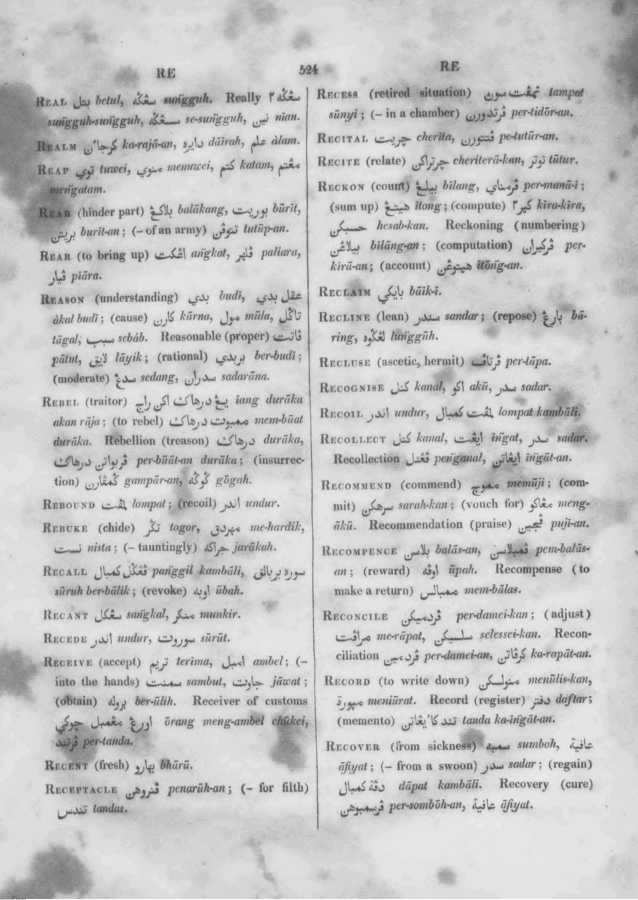 RE 524 RE
REAL بتل betul, سڠݢه suñgguh. Really سڠݢه٢
suñgguh-suñgguh, سسڠݢه se-suñgguh, نين nian.
REALM كرجاءن ka-rajā-an, دايره dāirah, علم ālam.
REAP توي tuwei, منوي menuwei, كتم katam, مڠتم
meñgatam.
REAR (hinder part) بلاكڠ balākang, بوريت būrit,
بريتن burīt-an; (– of an army) تتوڤن tutūp-an.
REAR (to bring up) اڠكت añgkat, ڤلير paliara,
ڤيار piāra.
REASON (understanding) بدي budi, عقل بدي
ākal budi; (cause) كارن kārna, مول mūla, تاݢل
tāgal, سبب sebāb. Reasonable (proper) ڤاتت
pātut, لايق lāyik; (rational) بربدي ber-budi;
(moderate) سدڠ sedang, سدران sadarāna.
REBEL (traitor) يڠ درهاك iang durāka
akan rāja; (to rebel) ممبوت درهاك mem-būat
durāka. Rebellion (treason) درهاك durāka,
ڤربواتن درهاك per-būāt-an durāka; (insurrec-
tion) ݢمڤارن gampār-an, ݢوݢه gōgah.
REBOUND لمڤت lompat; (recoil) اندر undur.
REBUKE (chide) تݢر togor, مهردق me-hardik,
نست nista; (– tauntingly) جراكه jarūkah.
RECALL ڤڠݢل كمبال pañggil kambāli, سوره بربالق
sūruh ber-bālik; (revoke) اوبه ūbah.
RECANT سڠكل sañgkal, منكر munkir.
RECEDE اندر undur, سوروت sūrūt.
RECEIVE (accept) تريم terima, امبل ambel; (–
into the hands) سمبت sambut, جاوت jāwat;
(obtain) بروله ber-ūlih. Receiver of customs
اورڠ مڠمبل چوكي ōrang meng-ambel chūkei,
ڤرتند per-tanda.
RECENT (fresh) بهارو bhārū.
RECEPTACLE ڤنروهن penarūh-an; (– for filth)
تندس tandas.
RECESS (retired situation) تمڤت سوني tampat
sūnyi; (– in a chamber) ڤرتدورن per-tidōr-an.
RECITAL چريت cherita, ڤتتورن pe-tutūr-an.
RECITE (relate) چرتراكن cheriterā-kan, توتر tūtur.
RECKON (count) بيلڠ bīlang, ڤرمناي per-manā-i;
(sum up) هيتڠ ītong; (compute) كير٢ kīra-kīra,
حسبكن hesab-kan. Reckoning (numbering)
بيلاڠن bilāng-an; (computation) ڤركيران per-
kirā-an; (account) هيتوڠن ītōng-an.
RECLAIM بايكي bāik-i.
RECLINE (lean) سندر sandar; (repose) بارڠ bā-
ring, لڠݢوه lañggūh.
RECLUSE (ascetic, hermit) ڤرتاڤ per-tāpa.
RECOGNISE كنل kanal, اكو akū, سدر sadar.
RECOIL اندر undur, لمڤت كمبال lompat kambāli.
RECOLLECT كنل kanal, ايڠت iñgat, سدر sadar.
Recollection ڤڠنل peñganal, ايڠاتن iñgāt-an.
RECOMMEND (commend) مموج memūji; (com-
mit) سرهكن sarah-kan; (vouch for) مڠاكو meng-
ākū. Recommendation (praise) ڤوجين puji-an.
RECOMPENCE بلاسن balās-an, ڤمبلاسن pem-balās-
an; (reward) اوڤه ūpah. Recompense (to
make a return) ممبالس mem-bālas.
RECONCILE ڤردميكن per-damei-kan; (adjust)
مراڤت me-rāpat, سلسيكن selessei-kan. Recon-
ciliation ڤردمين per-damei-an, كرڤاتن ka-rapāt-an.
RECORD (to write down) منوليسكن menūlis-kan,
مپورة meniūrat. Record (register) دفتر daftar;
(memento) تند كايڠاتن tanda ka-iñgāt-an.
RECOVER (from sickness) سمبه sumboh, عافية
āfiyat; (– from a swoon) سدر sadar; (regain)
داڤت كمبال dāpat kambāli. Recovery (cure)
ڤرسمبوهن per-sombōh-an, عافية āfiyat.